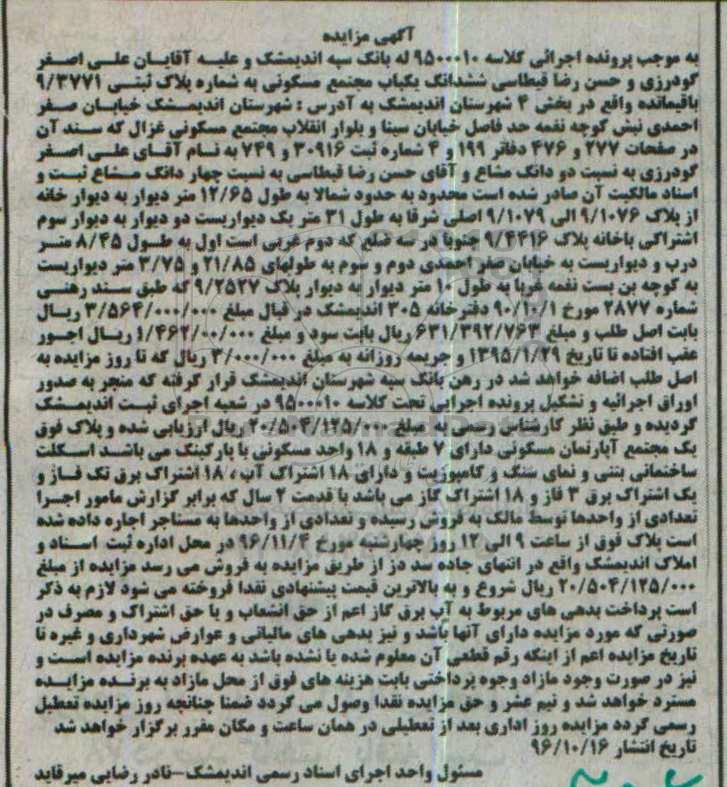 آگهی مزایده
به موجب پرونده اجرائی کلاسه ۹۵۰۰۰۱۰ له بانک سپه اندیمشک و علیه آقایان علی اصغر
گودرزی و حسن رضا قیطاسی ششدانگ یکباب مجتمع مسکونی به شماره پلاک ثبتی ۹/۳۷۷۱
باقیمانده واقع در بخش ۴ شهرستان اندیمشک به آدرس : شهرستان اندیمشک خیابان صفر
احمدی نبش کوچه نغمه حد فاصل خیابان سینا و بلوار انقلاب مجتمع مسکونی غزال که سند آن
در صفحات ۲۷۷ و ۴۷۶ دفاتر ۱۹۹ و ۴ شماره ثبت ۳۰۹۱۶ و ۷۴۹ به نام آقای علی اصغر
گودرزی به نسبت دو دانگ مشاع و آقای حسن رضا قیطاسی به نسبت چهار دانگ مشاع ثبت و
اسناد مالکیت آن صادر شده است محدود به حدود شمالا به طول ۱۲/۶۵ متر دیوار به دیوار خانه
از پلاک ۹/۱۰۷۶ الی ۹/۱۰۷۹ اصلی شرقا به طول ۳۱ متر یک دیواریست دو دیوار به دیوار سوم
اشتراکی باخانه پلاک ۹/۴۴۱۶ جنوبا در سه ضلع که دوم غربی است اول به طول ۸/۴۵ متر
درب و دیواریست به خیابان صفر احمدی دوم و سوم به طولهای ۲۱/۸۵ و ۳/۷۵ متر دیواریست
به کوچه بن بست نغمه غربا به طول ۱۰ متر دیوار به دیوار پلاک ۹/۲۵۲۷ که طبق سند رهنی
شماره ۲۸۷۷ مورخ ۹۰/۱۰/۱ دفترخانه ۳۰۵ اندیمشک در قبال مبلغ ۳/۵۶۴/۰۰۰/۰۰۰ ریال
بابت اصل طلب و مبلغ ۶۳۱/۳۹۲/۷۶۳ ریال بابت سود و مبلغ ۱/۴۶۲/۰۰/۰۰۰ ریال اجور
عقب افتاده تا تاریخ ۱۳۹۵/۱/۲۹ و جریمه روزانه به مبلغ ۳/۰۰۰/۰۰۰ ریال که تا روز مزایده به
اصل طلب اضافه خواهد شد در رهن بانک سپه شهرستان اندیمشک قرار گرفته که منجر به صدور
اوراق اجرائیه و تشکیل پرونده اجرایی تحت کلاسه ۹۵۰۰۰۱۰ در شعبه اجرای ثبت اندیمشک
گردیده و طبق نظر کارشناس رسمی به مبلغ ۲۰/۵۰۴/۱۲۵/۰۰۰ ریال ارزیابی شده و پلاک فوق
یک مجتمع آپارتمان مسکونی دارای ۷ طبقه و ۱۸ واحد مسکونی با پارکینگ می باشد اسکلت
ساختمانی بتنی و نمای سنگ و کامپوزیت و دارای ۱۸ اشتراک آب ، ۱۸ اشتراک برق تک فاز و
یک اشتراک برق ۳ فاز و ۱۸ اشتراک گاز می باشد با قدمت ۲ سال که برابر گزارش مامور اجرا
تعدادی از واحدها توسط مالک به فروش رسیده و تعدادی از واحدها به مستاجر اجاره داده شده
است پلاک فوق از ساعت ۹ الی ۱۲ روز چهارشنبه مورخ ۹۶/۱۱/۴ در محل اداره ثبت اسناد و
املاک اندیمشک واقع در انتهای جاده سد دز از طریق مزایده به فروش می رسد مزایده از مبلغ
۲۰/۵۰۴/۱۲۵/۰۰۰ ریال شروع و به بالاترین قیمت پیشنهادی نقدا فروخته می شود لازم به ذکر
است پرداخت بدهی های مربوط به آب برق گاز اعم از حق انشعاب و یا حق اشتراک و مصرف در
صورتی که مورد مزایده دارای آنها باشد و نیز بدهی های مالیاتی و عوارض شهرداری و غیره تا
تاریخ مزایده اعم از اینکه رقم قطعی آن معلوم شده یا نشده باشد به عهده برنده مزایده است و
نیز در صورت وجود مازاد وجوه پرداختی بابت هزینه های فوق از محل مازاد به برنده مزایده
مسترد خواهد شد و نیم عشر و حق مزایده نقدا وصول می گردد ضمنا چنانچه روز مزایده تعطیل
رسمی گردد مزایده روز اداری بعد از تعطیلی در همان ساعت و مکان مقرر برگزار خواهد شد
تاریخ انتشار ۹۶/۱۰/۱۶
مسئول واحد اجرای اسناد رسمی اندیمشک-نادر رضایی میرقاید